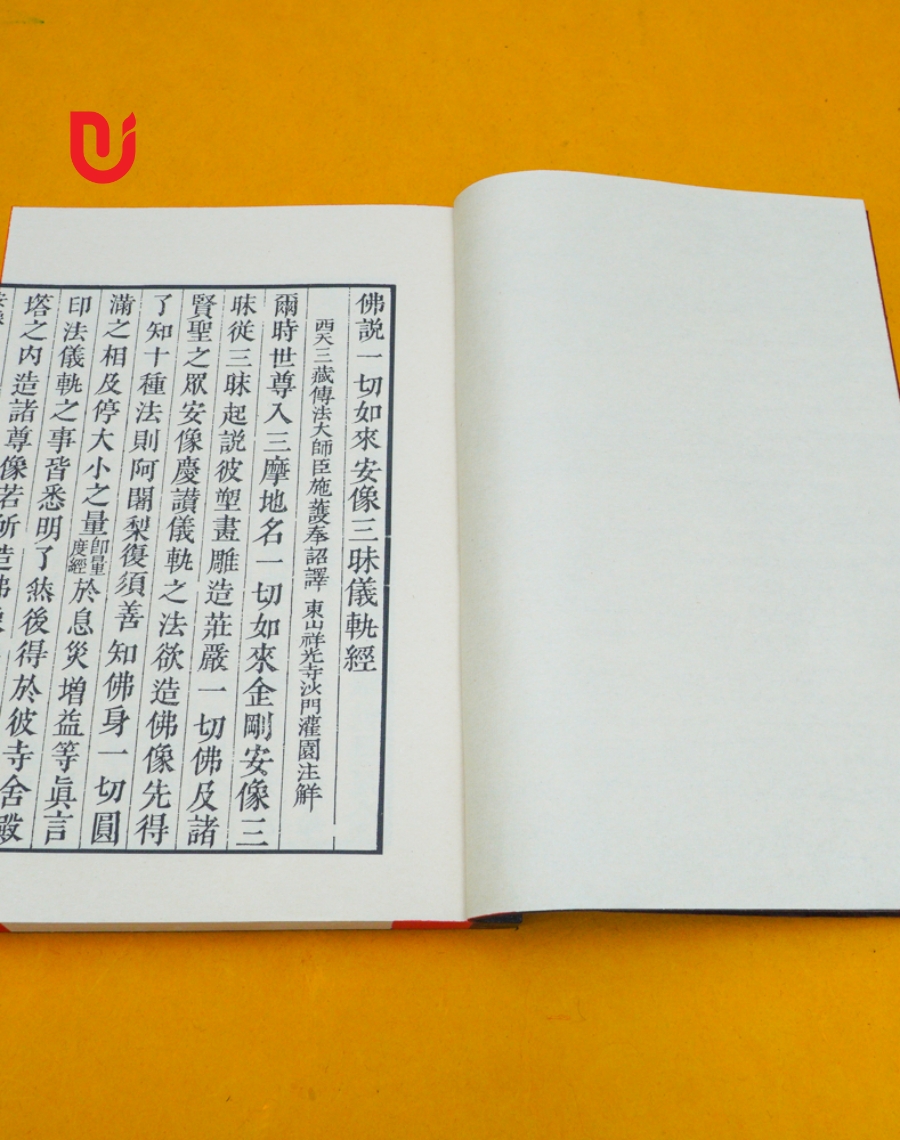 佛説一切如來安像三昧儀軌經
西天三藏傳法大師臣施護奉詔譯 東山祥光寺沙門灌園注觧
爾時世尊入三摩地名一切如來金剛安像三
昧從三昧起説彼塑畫雕造莊嚴一切佛及諸
賢聖之眾安像慶讃儀軌之法欲造佛像先得
了知十種法則阿闍梨復須善知佛身一切圓
滿之相及停大小之量卽量度經於息災增益等眞言
印法儀軌之事皆悉明了然後得於彼寺舍殿
塔之内造諸尊像若所造佛